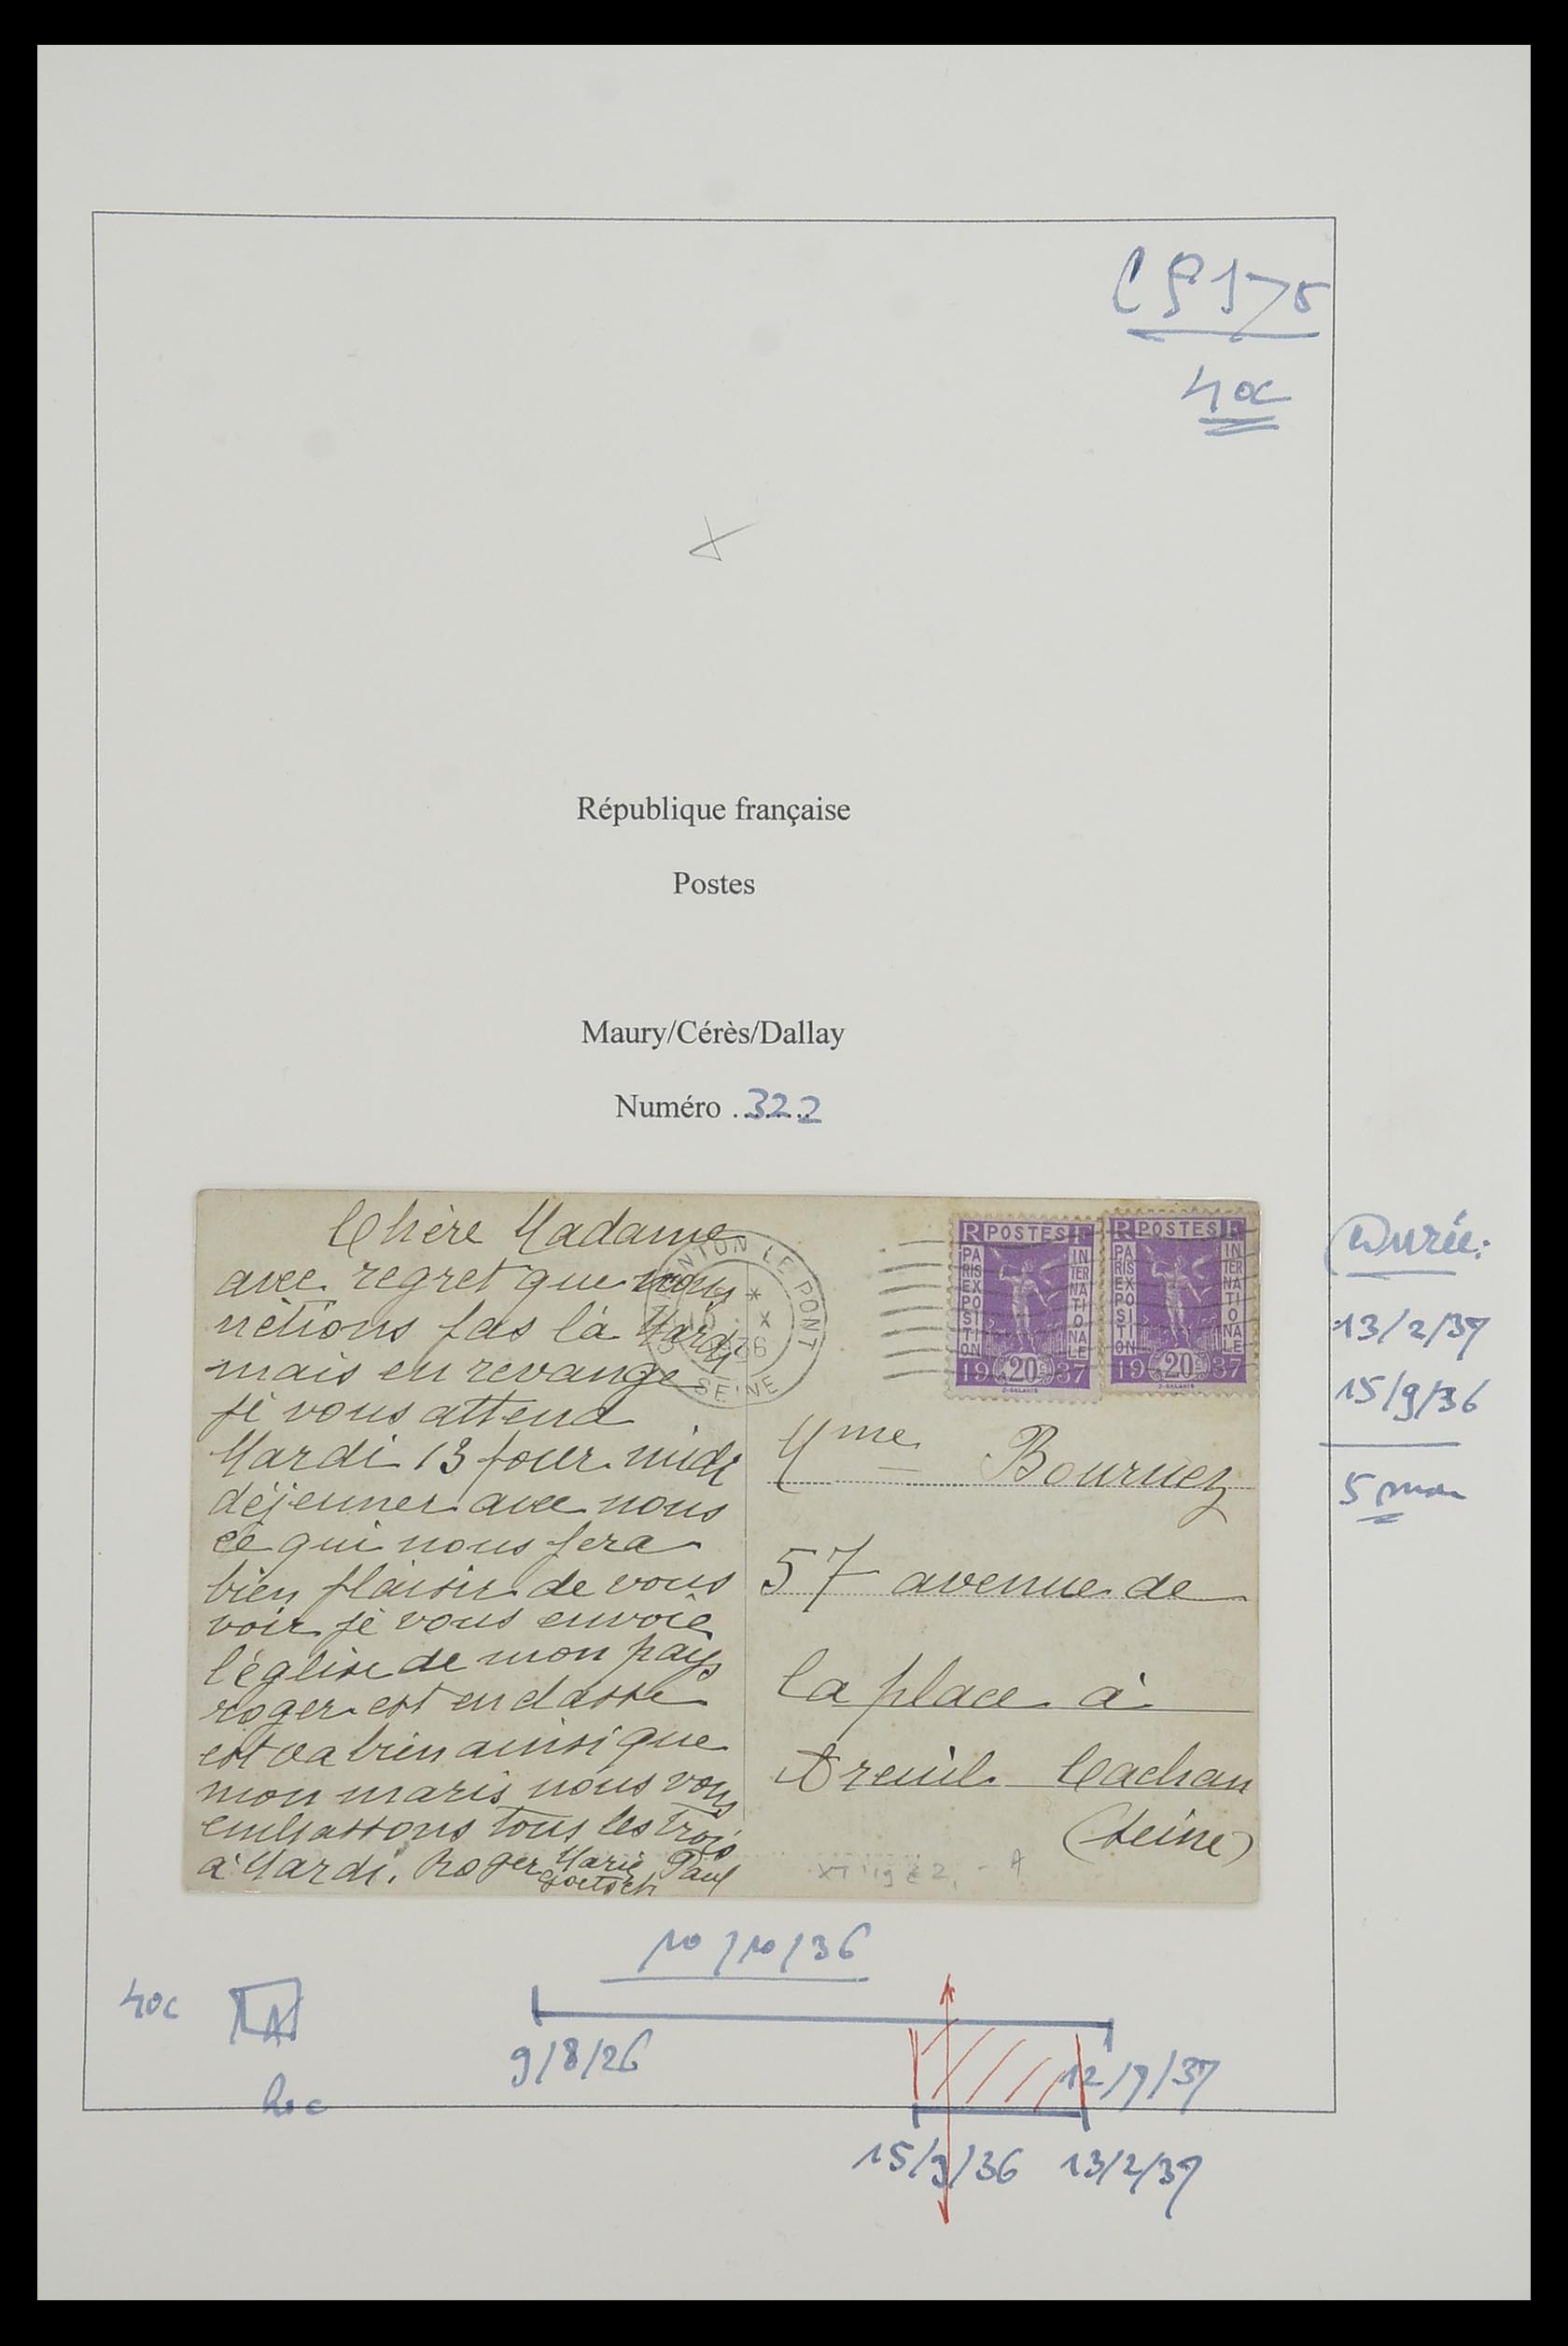 CP 5175
40c
République française
Postes
Maury/Cérès/Dallay
Numéro ........ 322
Chère Madame
avec regret que vous
nètions pas là Mardi
mais en revange
je vous attend
Mardi 13 pour midi
déjeuner avec nous
ce qui nous fera
bien plaisir de vous
voir je vous envoie
l'église de mon pays
roger est en classe
est va bien ainsi que
mon maris nous vous
embrassons tous les trois
à Mardi. Roger Marie Paul
CHARENTON LE PONT
*
10 X
1936
SEINE
RF POSTES
PARIS EXPOSITION
INTERNATIONALE
1937
20c
RF POSTES
PARIS EXPOSITION
INTERNATIONALE
1937
20c
Mme Bournez
57 avenue de
la place à
Arcuil Cachan
(Seine)
Durée:
13/2/37
15/9/36
5 mois
10/10/36
40c
9/8/26
12/7/37
15/9/36
13/2/37